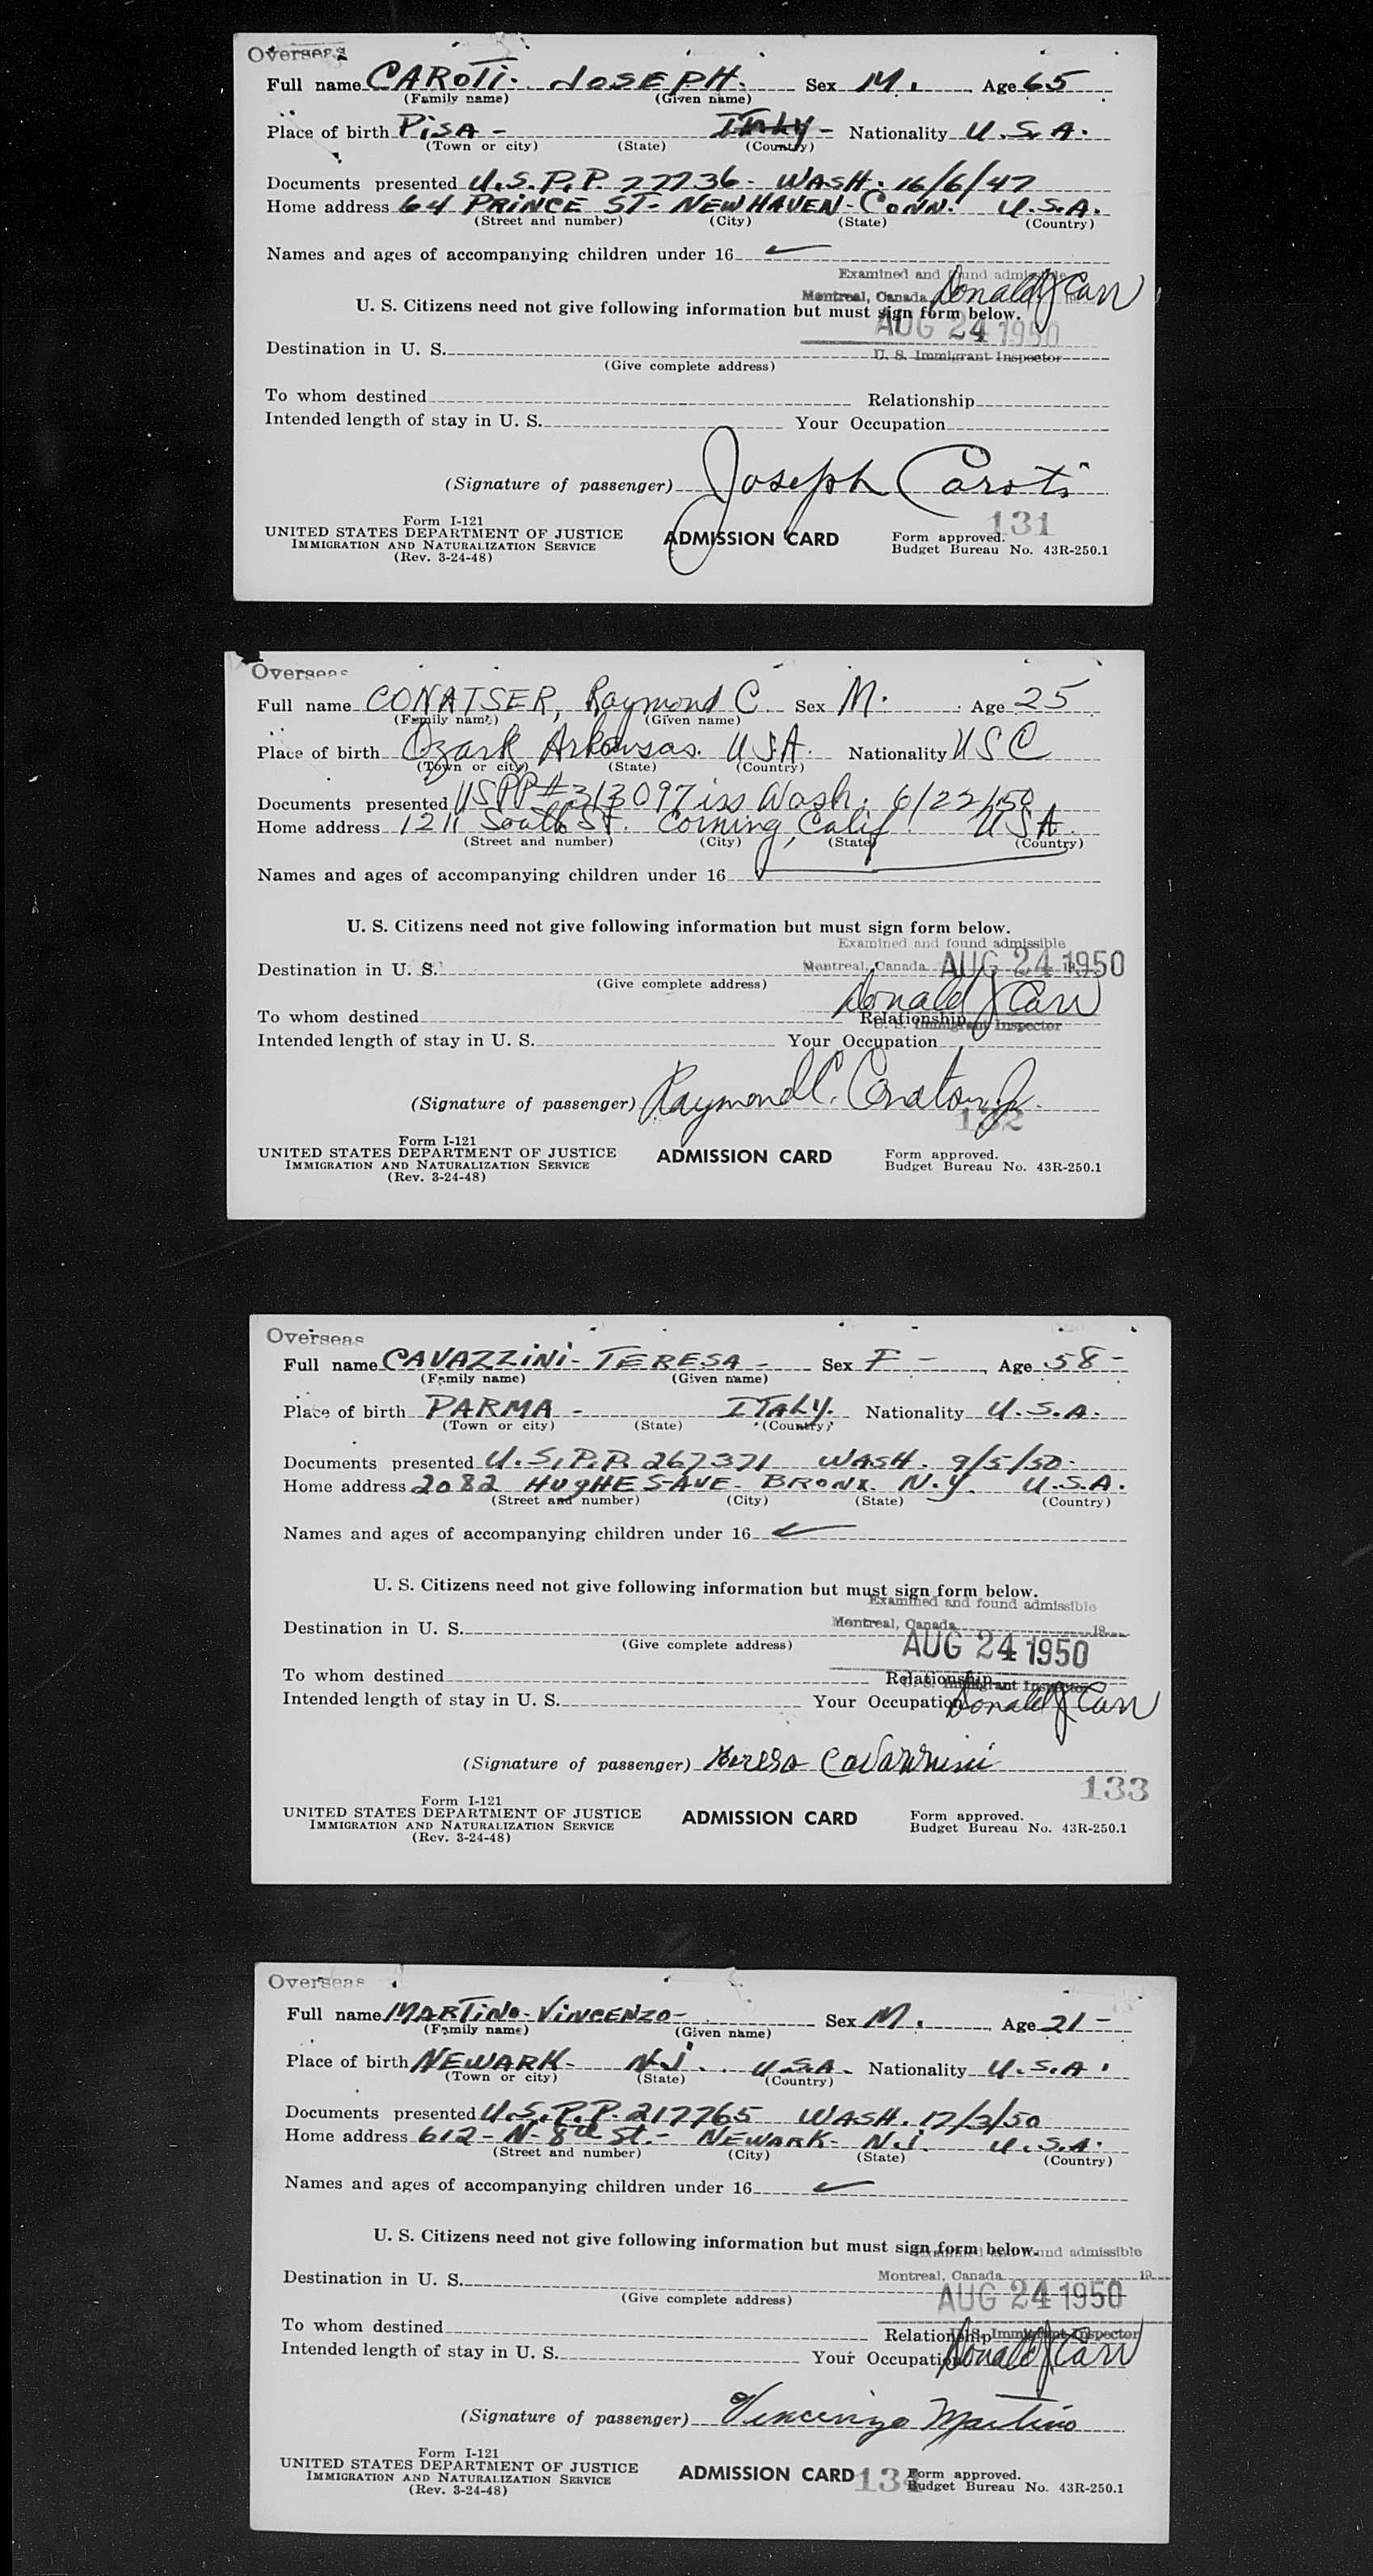 Overseas
Full name CAROTI- JOSEPH. Sex M. Age 65
(Family name) (Given name)
Place of birth PiSA - ITALY - Nationality U.S.A.
(Town or city) (State) (Country)
Documents presented U.S.P.P. 77736- WASH. 16/6/47
Home address 64 PRINCE ST- NEW HAVEN- CONN. U.S.A.
(Street and number) (City) (State) (Country)
Names and ages of accompanying children under 16
Examined and found admissible
Montreal, Canada Donald J Carr
U. S. Citizens need not give following information but must sign form below.
AUG 24 1950
Destination in U. S. U. S. Immigrant Inspector
(Give complete address)
To whom destined Relationship
Intended length of stay in U. S. Your Occupation
(Signature of passenger) Joseph Caroti
131
Form I-121
UNITED STATES DEPARTMENT OF JUSTICE ADMISSION CARD Form approved.
IMMIGRATION AND NATURALIZATION SERVICE Budget Bureau No. 43R-250.1
(Rev. 3-24-48)
Overseas
Full name CONATSER, Raymond C. Sex M. Age 25
(Family name) (Given name)
Place of birth Ozark Arkansas. USA. Nationality USC
(Town or city) (State) (Country)
Documents presented USPP#313097 iss Wash. 6/22/50
Home address 1211 South St. Corning, Calif. USA.
(Street and number) (City) (State) (Country)
Names and ages of accompanying children under 16
U. S. Citizens need not give following information but must sign form below.
Examined and found admissible
Destination in U. S. Montreal, Canada AUG 24 1950
(Give complete address) Donald J Carr
To whom destined Relationship
U. S. Immigrant Inspector
Intended length of stay in U. S. Your Occupation
(Signature of passenger) Raymond C. Conatser Jr.
132
Form I-121
UNITED STATES DEPARTMENT OF JUSTICE ADMISSION CARD Form approved.
IMMIGRATION AND NATURALIZATION SERVICE Budget Bureau No. 43R-250.1
(Rev. 3-24-48)
Overseas
Full name CAVAZZiNi- TERESA - Sex F - Age 58-
(Family name) (Given name)
Place of birth PARMA - ITALY. Nationality U.S.A.
(Town or city) (State) (Country)
Documents presented U.S.P.P. 267371 WASH. 9/5/50-
Home address 2082 HUgHES-AVE- BRONX. N.y. U.S.A.
(Street and number) (City) (State) (Country)
Names and ages of accompanying children under 16
U. S. Citizens need not give following information but must sign form below.
Examined and found admissible
Destination in U. S. Montreal, Canada 19
(Give complete address) AUG 24 1950
To whom destined Relationship
U. S. Immigrant Inspector
Intended length of stay in U. S. Your Occupation Donald J Carr
(Signature of passenger) Teresa Cavazzini
133
Form I-121
UNITED STATES DEPARTMENT OF JUSTICE ADMISSION CARD Form approved.
IMMIGRATION AND NATURALIZATION SERVICE Budget Bureau No. 43R-250.1
(Rev. 3-24-48)
Overseas
Full name MARTiNO- ViNCENZO- Sex M. Age 21-
(Family name) (Given name)
Place of birth NEWARK- N.J. U.S.A. Nationality U.S.A.
(Town or city) (State) (Country)
Documents presented U.S.P.P. 217765 WASH. 17/3/50
Home address 612- N- 8th St.- NEWARK- N.J. U.S.A.
(Street and number) (City) (State) (Country)
Names and ages of accompanying children under 16
U. S. Citizens need not give following information but must sign form below.
Examined and found admissible
Destination in U. S. Montreal, Canada 19
(Give complete address) AUG 24 1950
To whom destined Relationship
U. S. Immigrant Inspector
Intended length of stay in U. S. Your Occupation Donald J Carr
(Signature of passenger) Vincenzo Martino
Form I-121
UNITED STATES DEPARTMENT OF JUSTICE ADMISSION CARD 134 Form approved.
IMMIGRATION AND NATURALIZATION SERVICE Budget Bureau No. 43R-250.1
(Rev. 3-24-48)